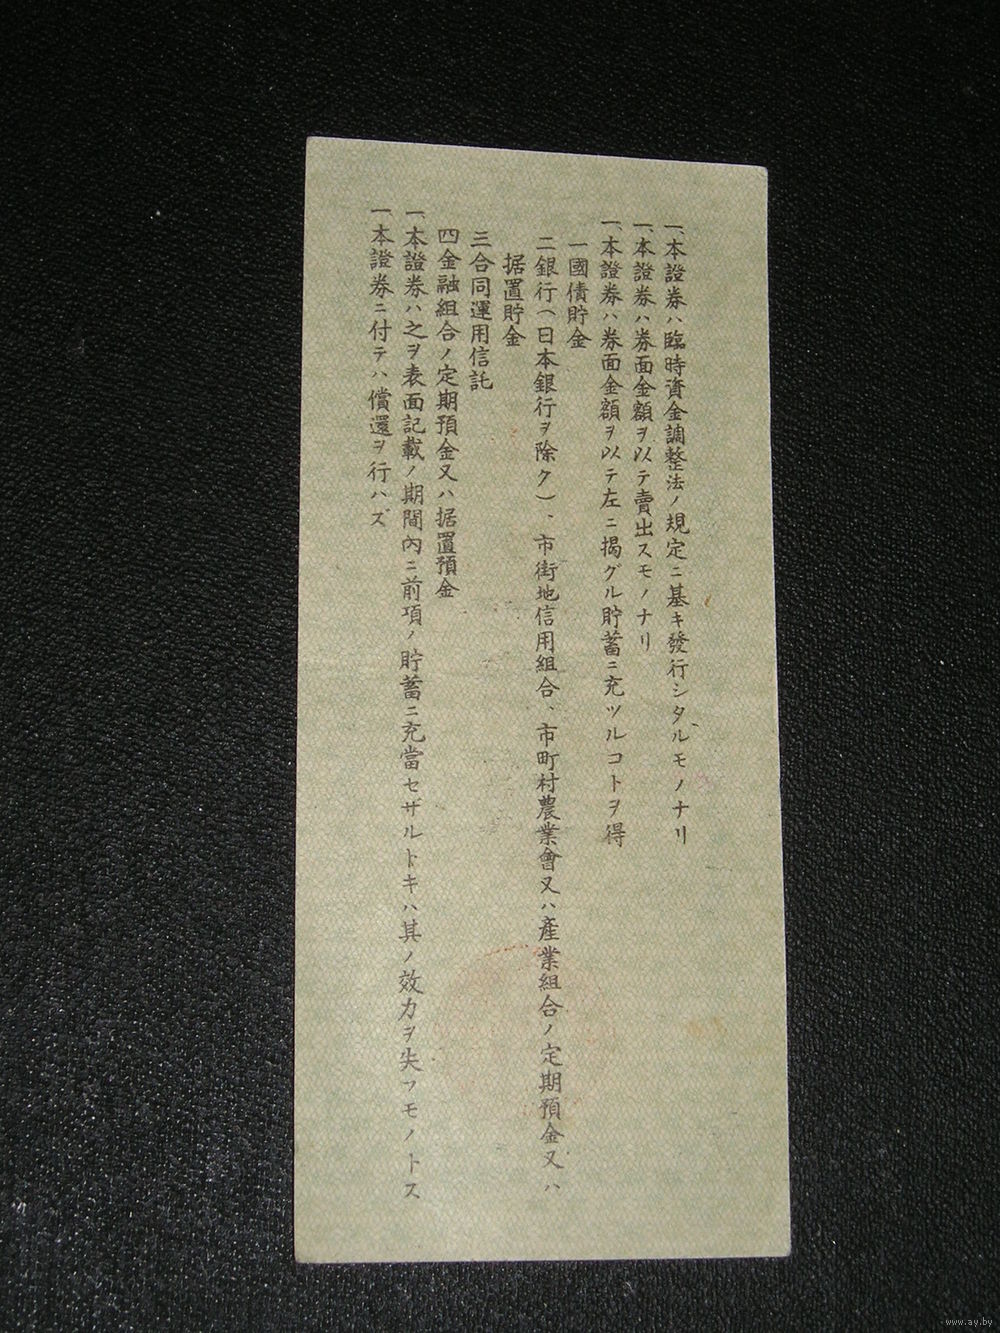 一、本證券ハ臨時資金調整法ノ規定ニ基キ發行シタルモノナリ
一、本證券ハ券面金額ヲ以テ賣出スモノナリ
一、本證券ハ券面金額ヲ以テ左ニ揭グル貯蓄ニ充ツルコトヲ得
一國債貯金
二銀行（日本銀行ヲ除ク）、市街地信用組合、市町村農業會又ハ產業組合ノ定期預金又ハ
据置貯金
三合同運用信託
四金融組合ノ定期預金又ハ据置預金
一、本證券ハ之ヲ表面記載ノ期間內ニ前項ノ貯蓄ニ充當セザルトキハ其ノ效力ヲ失フモノトス
一、本證券ニ付テハ償還ヲ行ハズ
www.ay.by